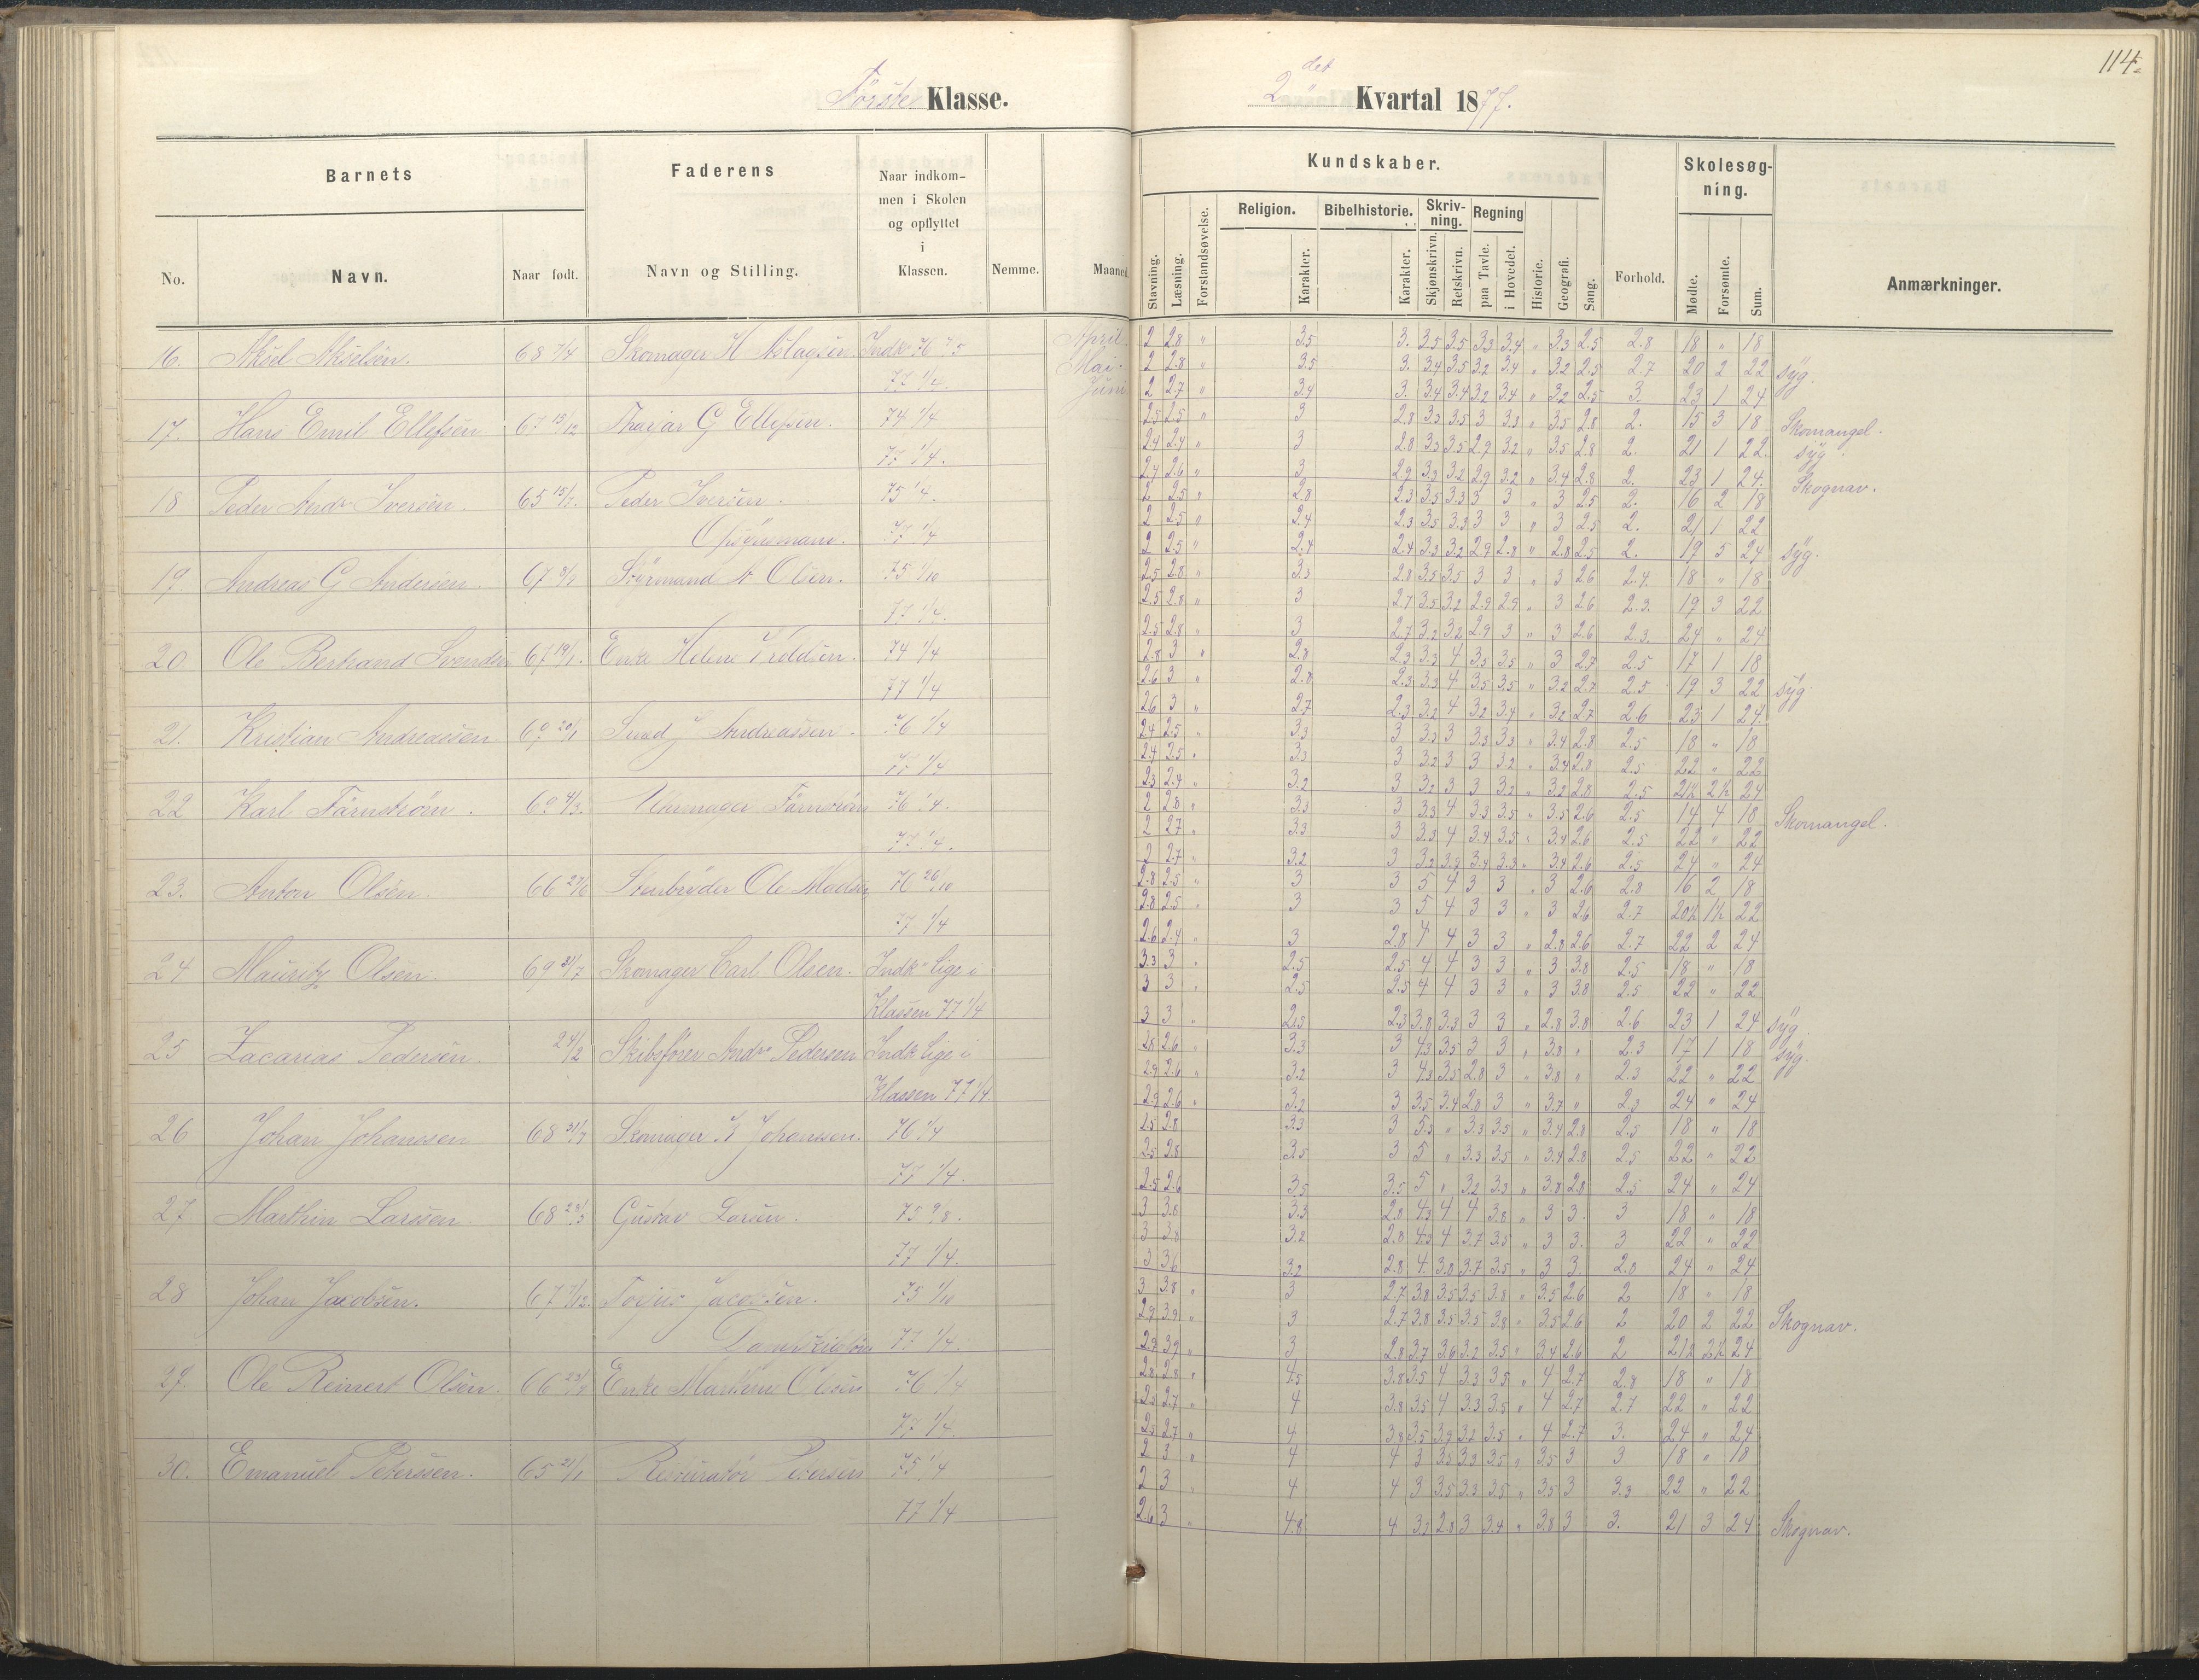 114.
Første Klasse.
2det Kvartal 1877.
Barnets
Faderens
Naar indkommen i Skolen og opflyttet i Klassen.
Nemme.
Maaned.
Kundskaber.
Forhold.
Skolesøgning.
Anmærkninger.
No.
Navn.
Naar født.
Navn og Stilling.
Stavning.
Læsning.
Forstandsøvelse.
Religion.
Karakter.
Bibelhistorie.
Karakter.
Skrivning.
Skjønskrivn.
Retskrivn.
Regning
paa Tavle.
i Hovedet.
Historie.
Geografi.
Sang.
Mødte.
Forsømte.
Sum.
16. Aksel Akselsen. 68 7/4 Skomager H Aslagsen. Indk 76 7/5 April. 2 2.8 " 3.5 3. 3.5 3.5 3.3 3.4 " 3.3 2.5 2.8 18 " 18
77 1/4. Mai. 2 2.8 " 3.5 3. 3.4 3.5 3.2 3.4 " 3.2 2.5 2.7 20 2 22 syg.
Juni 2 2.7 " 3.4 3. 3.4 3.4 3.2 3.4 " 3.2 2.5 3. 23 1 24
17. Hans Emil Ellefsen 67 13/12 G Ellefsen. 74 1/4 2.5 2.5 " 3 2.8 3.3 3.5 3 3.3 " 3.5 2.8 2. 15 3 18 Skomangel.
77 1/4. 2.4 2.4 " 3 2.8 3.3 3.5 2.9 3.2 " 3.5 2.8 2. 21 1 22 syg
2.4 2.6 " 3 2.9 3.3 3.2 2.9 3.2 " 3.4 2.8 2. 23 1 24. Skognav.
18 Peder Andr Iversen. 65 15/7. Peder Iversen. 75 1/4. 2 2.5 " 2.8 2.3 3.5 3.3 3 3 " 3 2.5 2. 16 2 18
Opsynsmann. 77 1/4 2 2.5 " 2.4 2.3 3.5 3.3 3 3 " 3 2.5 2. 21 1 22
2 2.5 " 2.4 2.4 3.3 3.2 2.9 2.8 " 2.8 2.5 2. 19 5 24 syg.
19. Andreas G Andersen. 67 3/9 Styrmand A Olsen. 75 1/10 2.5 2.8 " 3.3 2.8 3.5 3.5 3 3 " 3 2.6 2.4. 18 " 18
77 1/4. 2.5 2.8 " 3 2.7 3.5 3.2 2.9 2.9 " 3 2.6 2.3. 19 3 22
2.5 2.8 " 3 2.7 3.2 3.2 2.9 3 " 3 2.6 2.3. 24 " 24
20. Ole Bertrand Svendsen 67 19/1. Enke Helene 74 1/4 2.8 3 " 2.8 2.3 3.3 4 3.5 3.5 " 3 2.7 2.5 17 1 18
77 1/4 2.6 3 " 2.8 2.3 3.3 4 3.5 3.5 " 3.2 2.7 2.5 19 3 22 syg
2.6 3 " 2.7 2.3 3.2 4 3.2 3.4 " 3.2 2.7 2.6 23 1 24.
21. Kristian Andreassen 67 20/1 Andreassen. 76 1/4 2.4 2.5 " 3.3 3 3.3 3 3.3 3.3 " 3.4 2.8 2.5 18 " 18
77 1/4 2.4 2.5 " 3.3 3 3.2 3 3 3.2 " 3.4 2.8 2.5 22 " 22
2.3 2.4 " 3.2 3 3.2 3 3 3.2 " 3.2 2.8 2.5 21½ 2½ 24
22 Karl Färnström. 69 4/3. Uhrmager Färnström 76 1/4. 2 2.8 " 3.3 3 3.3 4 3.3 3.5 " 3.5 2.6 2.5 14 4 18 Skomangel.
77 1/4. 2 2.7 " 3.3 3 3.3 4 3.4 3.5 " 3.4 2.6 2.5 22 " 22
2 2.7 " 3.2 3 3.2 3.7 3.4 3.3 " 3.4 2.6 2.5 24 " 24
23. Anton Olsen. 66 27/6 Stenbryder Ole Madsen 76 26/10 2.8 2.5 " 3 3 5 4 3 3 " 3 2.6 2.8 16 2 18
77 1/4 2.8 2.5 " 3 3 5 4 3 3 " 3 2.6 2.7 20½ 1½ 22
2.6 2.4 " 3 2.8 4 4 3 3 " 2.8 2.6 2.7 22 2 24
24 Mauritz Olsen. 69 31/7 Skomager Carl Olsen. Indk lige i 3.3 3 " 2.5 2.5 4 4 3 3 " 3 3.8 2.5 18 " 18
Klassen 77 1/4 3 3 " 2.5 2.5 4 4 3 3 " 3 3.8 2.5 22 " 22
3 3 " 2.5 2.3 3.8 3.3 3 3 " 2.8 3.8 2.6 23 1 24 syg
25 Zacarias Pedersen. 24/2 Skibsfører Andr Pedersen Indk lige i 2.8 2.6 " 3.3 3 4.3 3.5 3 3 " 3.8 " 2.3 17 1 18 syg.
Klassen 77 1/4 2.9 2.6 " 3.2 3 4.3 3.5 2.8 3 " 3.8 " 2.3 22 " 22
2.9 2.6 " 3.2 3 3.5 3.4 2.8 3 " 3.7 " 2.3 24 " 24
26 Johan Johanssen 68 31/7 Skomager J Johanssen. 76 1/4 2.5 2.8 3.3 3 5.3 " 3.3 3.5 " 3.4 2.8 2.5 18 " 18
77 1/4. 2.5 2.8 3.5 3 5 " 3.3 3.5 " 3.4 2.8 2.5 22 " 22
2.5 2.6 3.5 3.5 5 " 3.2 3.3 " 3.8 2.8 2.5 24 " 24
27 Marthin Larssen. 68 23/5 Gustav Larsen. 75 9/8. 3 3.8 3.3 2.8 4.3 4 4 3.8 " 3 3. 3 18 " 18
77 1/4. 3 3.8 3.2 2.8 4.3 4 3.7 3.5 " 3 3. 3 22 " 22
3 3.6 3.2 2.8 4. 3.8 3.7 3.5 " 3 3. 2.8 24 " 24
28 Johan Jacobsen. 67 7/12. Torjus Jacobsen. 75 1/10 3 3.8 " 3 2.7 3.8 3.5 3.5 3.8 " 3.5 2.6 2 18 " 18
77 1/4. 2.9 3.9 " 3 2.7 3.8 3.5 3.5 3.8 " 3.5 2.6 2 20 2 22 Skognav.
2.9 3.9 " 3 2.8 3.7 3.6 3.2 3.5 " 3.4 2.6 2 21½ 2½ 24
29. Ole Reinert Olsen. 66 Enke Marthine Olsen 76 1/4 2.8 2.8 " 4.5 3.8 3.5 4 3.3 3.5 " 4 2.7 2.8 18 " 18
77 1/4 2.5 2.7 " 4 3.8 3.5 4 3.3 3.5 " 4 2.7 2.7 22 " 22
2.5 2.7 " 4 3.8 3.5 3.9 3.2 3.5 " 4 2.7 3. 24 " 24
30. Emanuel Peterssen. 65 21/1 Resturatør Petersen 75 1/4 2 3 " 4 4 3 3.5 3.3 3.5 " 3.5 3 3 18 " 18
77 1/4 2 3 " 4 4 3 3.5 3.3 3.5 " 3.5 3 3.3 22 " 22
2.6 3 " 4.8 4 3.2 2.8 3 3.4 " 3.8 3 3. 21 3 24 Skognav.